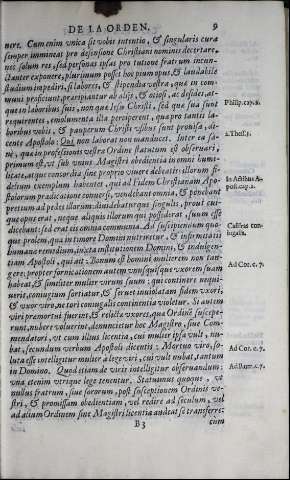 DE LA ORDEN. 9
nere. Cum enim vnica sit vobis intentio, & singularis cura
semper immineat pro defensione Christiani nominis decertare,
nec solum res, sed personas ipsas pro tuitione fratrum incun-
ctanter exponere, plurimum posset hoc pium opus, & laudabile
studium impediri, si labores, & stipendia vestra, quæ in com-
muni proficiunt, preriperentur ab alijs, & ociosi, ac desides, at-
que in laboribus suis, non quæ Iesu Christi, sed quæ sua sunt
requirentes, emolumenta ista perciperent, quæ pro tantis la-
boribus vobis, & pauperum Christi vsibus sunt prouisa, di-
cente Apostolo: Qui non laborat non manducet. Inter ea sa-
nè, quæ in professionis vestræ Ordine statutum est obseruari,
primum est, vt sub vnius Magistri obedientia in omni humi-
litate, atque concordia sine proprio viuere debeatis: illorum fi-
delium exemplum habentes, qui ad Fidem Christianam Apo-
stolorum prædicatione conuersi, vendebant omnia, & ponebant
pretium ad pedes illorum: diuidebaturque singulis, prout cui-
que opus erat, neque aliquis illorum quæ possidebat, suum esse
dicebant: sed erat eis omnia communia. Ad suscipiendum quo-
que prolem, quæ in timore Domini nutriretur, & infirmitatis
humanæ remedium, iuxta institutionem Domini, & indulgen-
tiam Apostoli, qui ait: Bonum est homini mulierem non tan-
gere: propter fornicationem autem vnusquisque vxorem suam
habeat, & similiter mulier virum suum: qui continere nequi-
uerit, coniugium sortiatur, & seruet inuiolatam fidem vxori,
& vxor viro, ne tori coniugalis continentia violetur. Si autem
viri præmortui fuerint, & relictæ vxores, quæ Ordinem suscepe-
runt, nubere voluerint, denuncietur hoc Magistro, siue Com-
mendatori, vt cum illius licentia, cui mulier ipsa vult, nu-
bat, secundum verbum Apostoli dicentis: Mortuo viro, so-
luta est mulier à lege viri, cui vult nubat, tantum
in Domino. Quod etiam de viris intelligitur obseruandum:
vna etenim vterque lege tenentur. Statuimus quoque, vt
nullus fratrum, siue sororum, post susceptionem Ordinis ve-
stri, & promissam obedientiam, vel redire ad sæculum, vel
ad alium Ordinem sine Magistri licentia audeat se transferre:
B3 cum
Philip. cap. 2.
2. Thess. 3.
In Actibus A-
post. cap. 2.
Castitas con-
iugalis.
Ad Cor. c. 7.
Ad Cor. c. 7.
Ad Rom. c. 7.